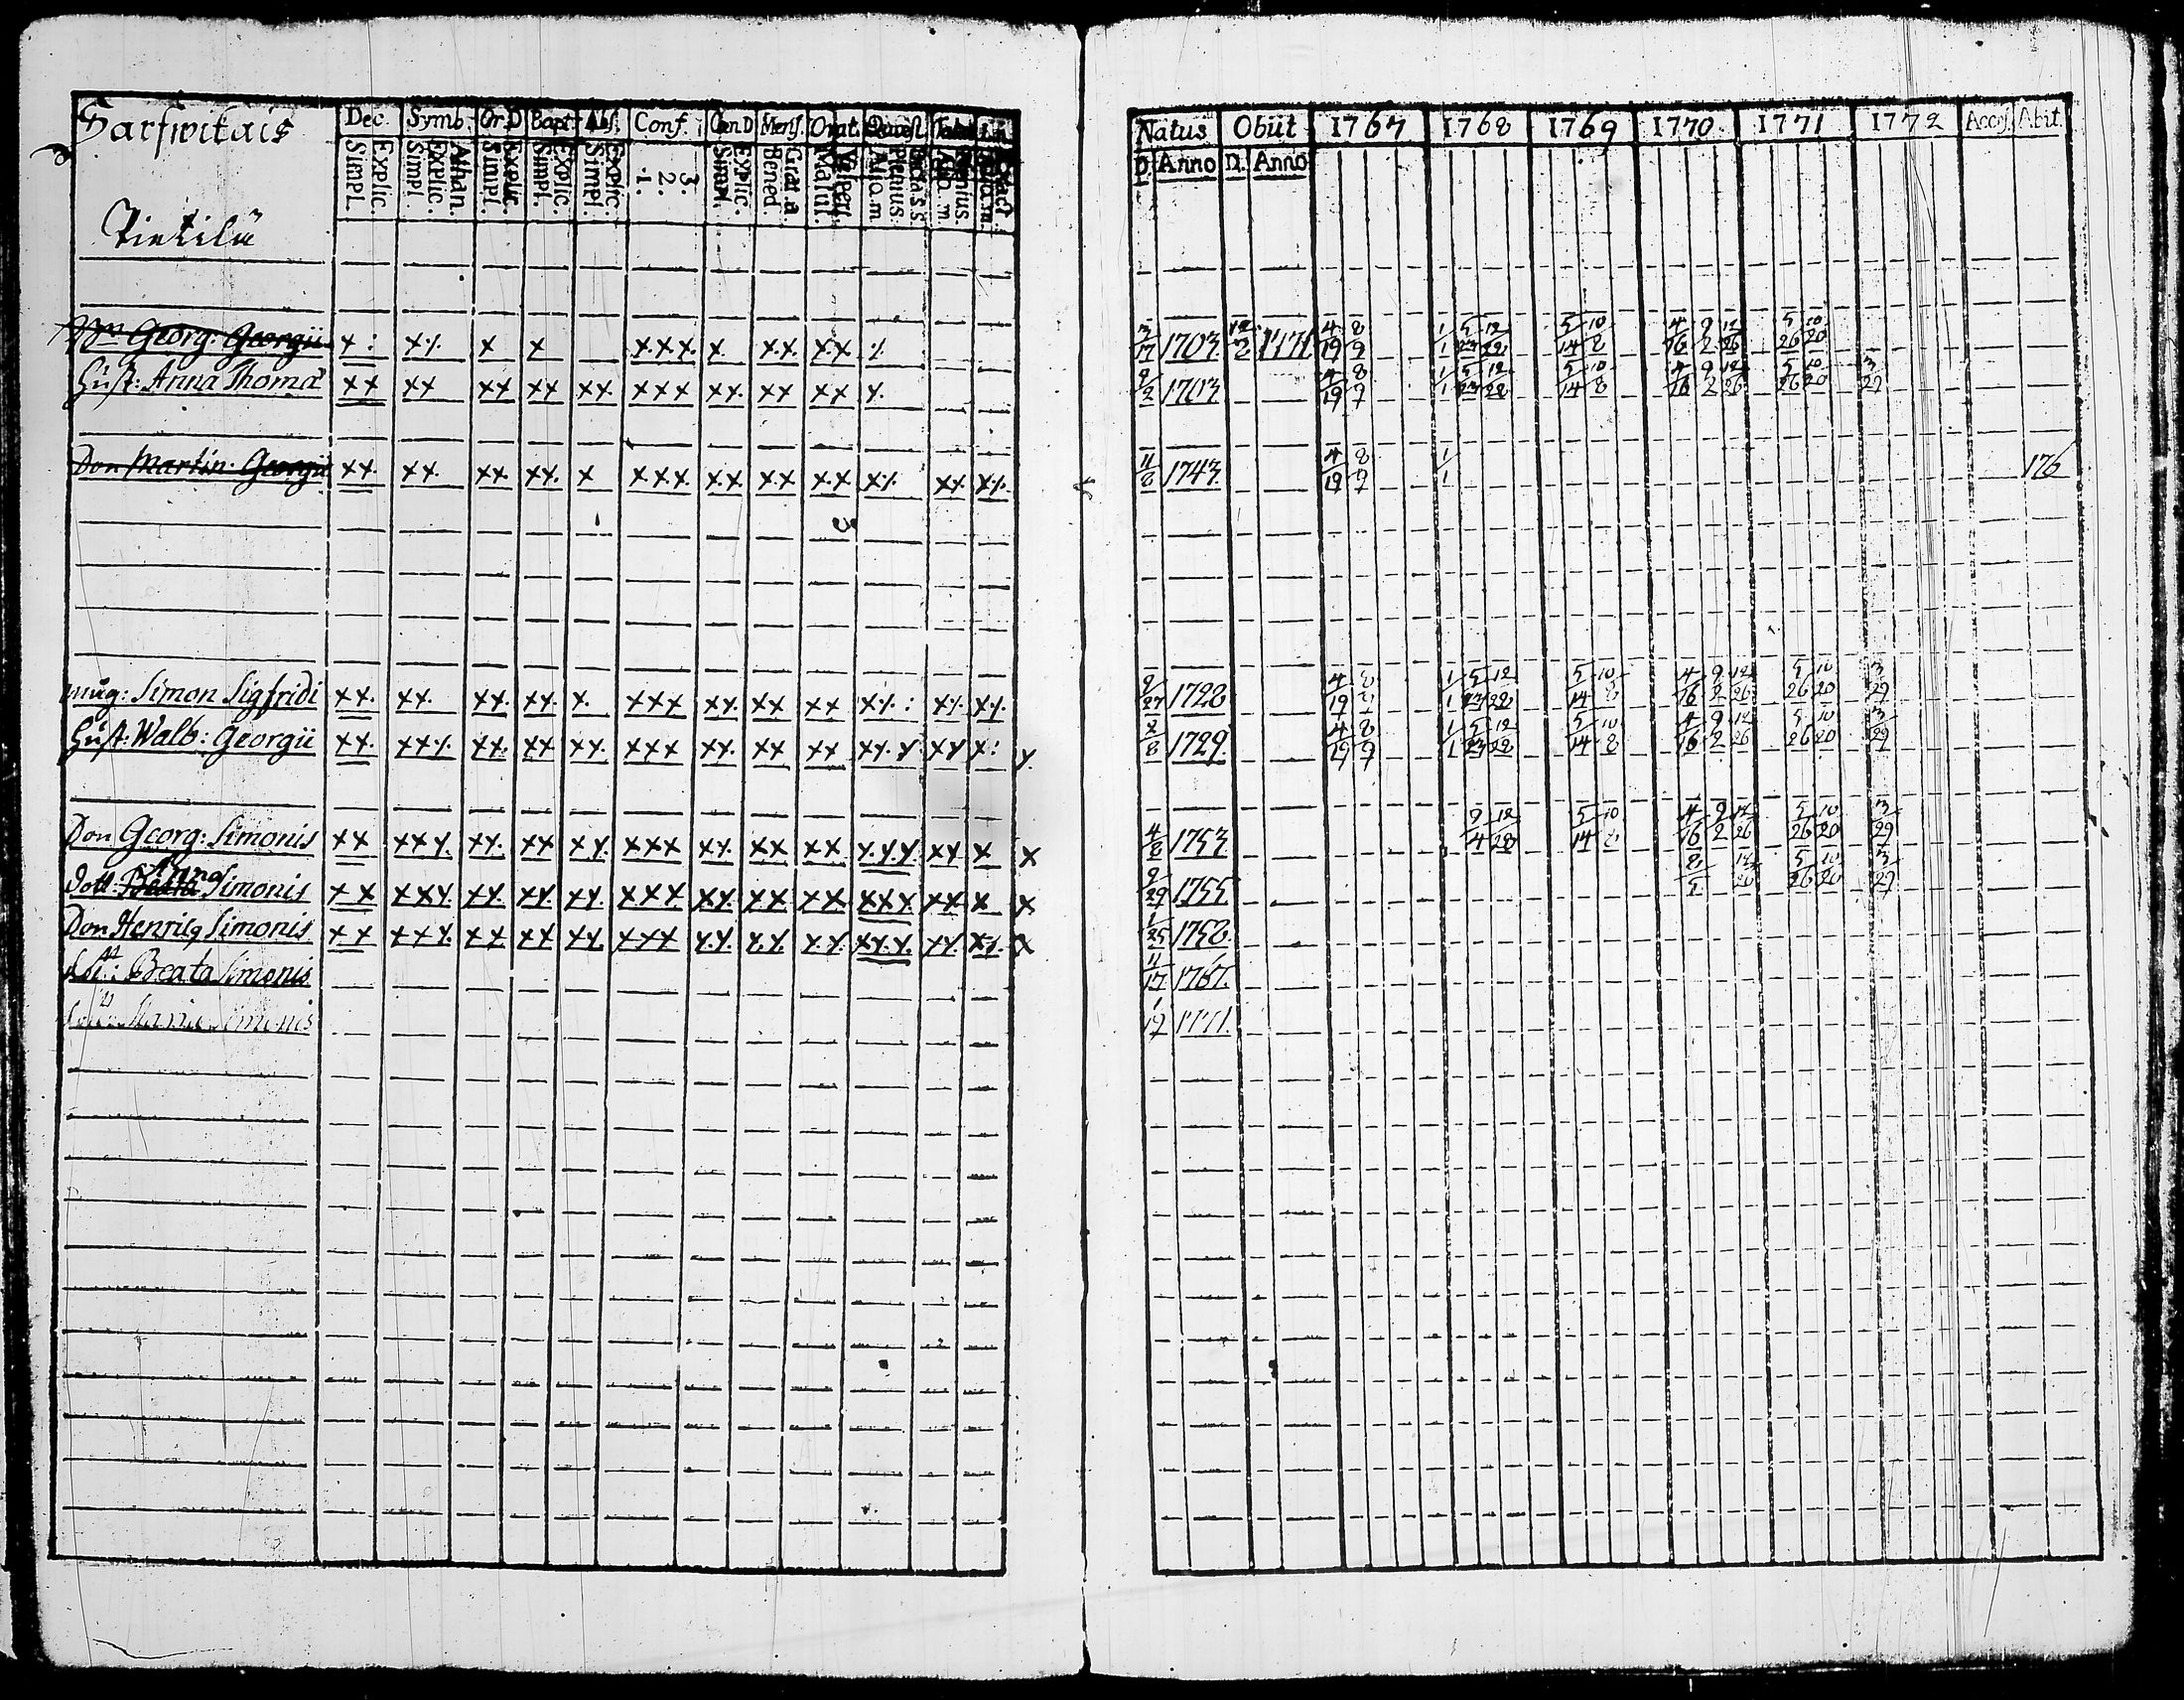 Sarfwitais Dec. Symb. Or.D Bapt Abs. Conf. Cen D Mens. Orat. Quæst.
Simpl. Explic. Simpl. Explic. Athan. Simpl. Explic. Simpl. Explic. Simpl. Explic. 1. 2. 3. Simpl. Explic. Bened. Grat. a Matut. Vesper. Aliq.m Plenius
Pietilä
Georg. Georgii x : x x. x x x.x.x. x x.x. x x x.
Hust: Anna Thomæ xx xx xx xx xx. xxx xx. xx xx x.
Don Martin. Georgii xx. xx. xx. xx. x xxx. xx xx xx xx. xx. xx.
måg: Simon Sigfridi xx. xx. xx. xx. x. xxx xx. xx xx xx. : xx. xx.
Hust: Walb: Georgii xx. xxx. xx. xx xx. xxx xx. xx xx xx. x. xx x:
Don Georg: Simonis xx xxx. xx. xx xx. xxx xx. xx xx x.x.x. xx x x
dott: Beata Anna Simonis xx xxx. xx. xx. xx. xxx xx. xx xx xxx xx x x
Don Henriq Simonis xx xxx. xx xx xx. xxx x.x. x.x. x.x. xx.x. xx. xx. x
Beata Simonis
Simonis
Natus Obiit 1767 1768 1769 1770 1771 1772 Acces. Abit
D. Anno D. Anno
3/17 1703. 12/2 1771 4/19 8/9 1/1 5/23 12/28 5/14 10/8 4/16 9/2 12/26 5/26 10/20
9/2 1703 4/19 8/9 1/1 5/23 12/28 5/14 10/8 4/16 9/2 12/26 5/26 10/20 3/29
11/8 1743. 4/19 8/9 1/1 176
9/27 1728 4/19 8/9 1/1 5/23 12/28 5/14 10/8 4/16 9/2 12/26 5/26 10/20 3/29
2/8 1729. 4/19 8/9 1/1 5/23 12/28 5/14 10/8 4/16 9/2 12/26 5/26 10/20 3/29
4/8 1753 9/4 12/28 5/14 10/8 4/16 9/2 12/26 5/26 10/20 3/29
9/29 1755 8/5 12/26 5/26 10/20 3/29
1/25 1758.
11/17 1767.
1/19 1771.